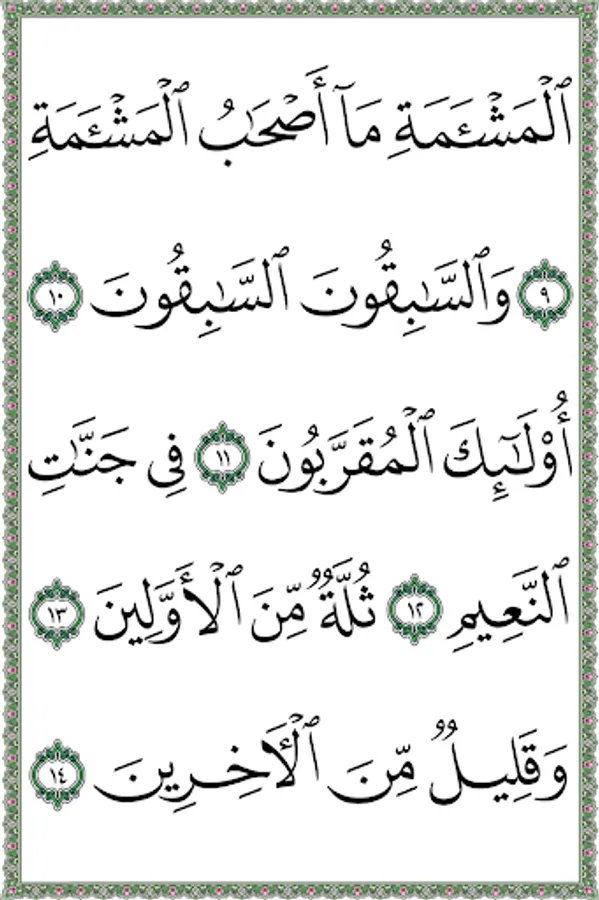 ٱلْمَشْـَٔمَةِ مَآ أَصْحَـٰبُ ٱلْمَشْـَٔمَةِ
٩ وَٱلسَّـٰبِقُونَ ٱلسَّـٰبِقُونَ ١٠
أُو۟لَـٰٓئِكَ ٱلْمُقَرَّبُونَ ١١ فِى جَنَّـٰتِ
ٱلنَّعِيمِ ١٢ ثُلَّةٌ مِّنَ ٱلْأَوَّلِينَ ١٣
وَقَلِيلٌ مِّنَ ٱلْـَٔاخِرِينَ ١٤